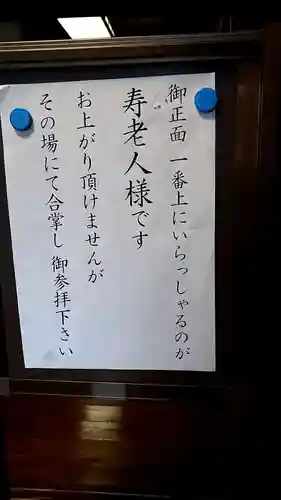 御正面 一番上にいらっしゃるのが
寿老人様です
お上がり頂けませんが
その場にて合掌し 御参拝下さい